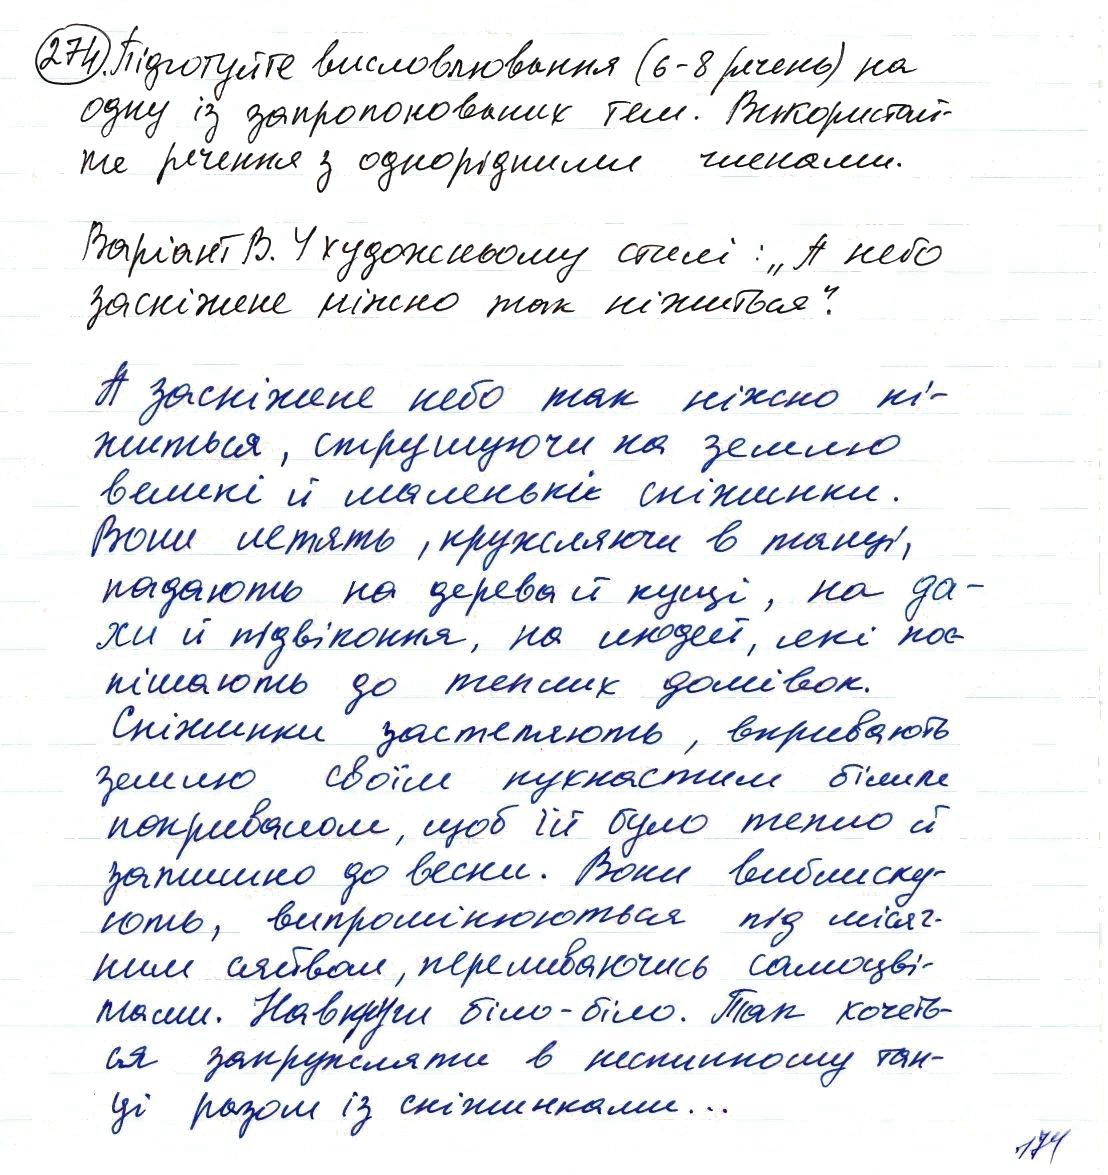 274. Підготуйте висловлювання (6-8 речень) на
одну із запропонованих тем. Використай-
те речення з однорідними членами.
Варіант В. У художньому стилі: „А небо
засніжене ніжно так ніжиться".
А засніжене небо так ніжно ні-
житься, струшуючи на землю
великі й маленькіє сніжинки.
Вони летять, кружляючи в танці,
падають на дерева й кущі, на да-
хи й підвіконня, на людей, які пос-
пішають до теплих домівок.
Сніжинки застеляють, вкривають
землю своїм пухнастим білим
покривалом, щоб їй було тепло й
затишно до весни. Вони виблиску-
ють, випромінюються під місяч-
ним сяйвом, переливаючись самоцві-
тами. Навкруги біло-біло. Так хочеть-
ся закружляти в неспинному тан-
ці разом із сніжинками...
174